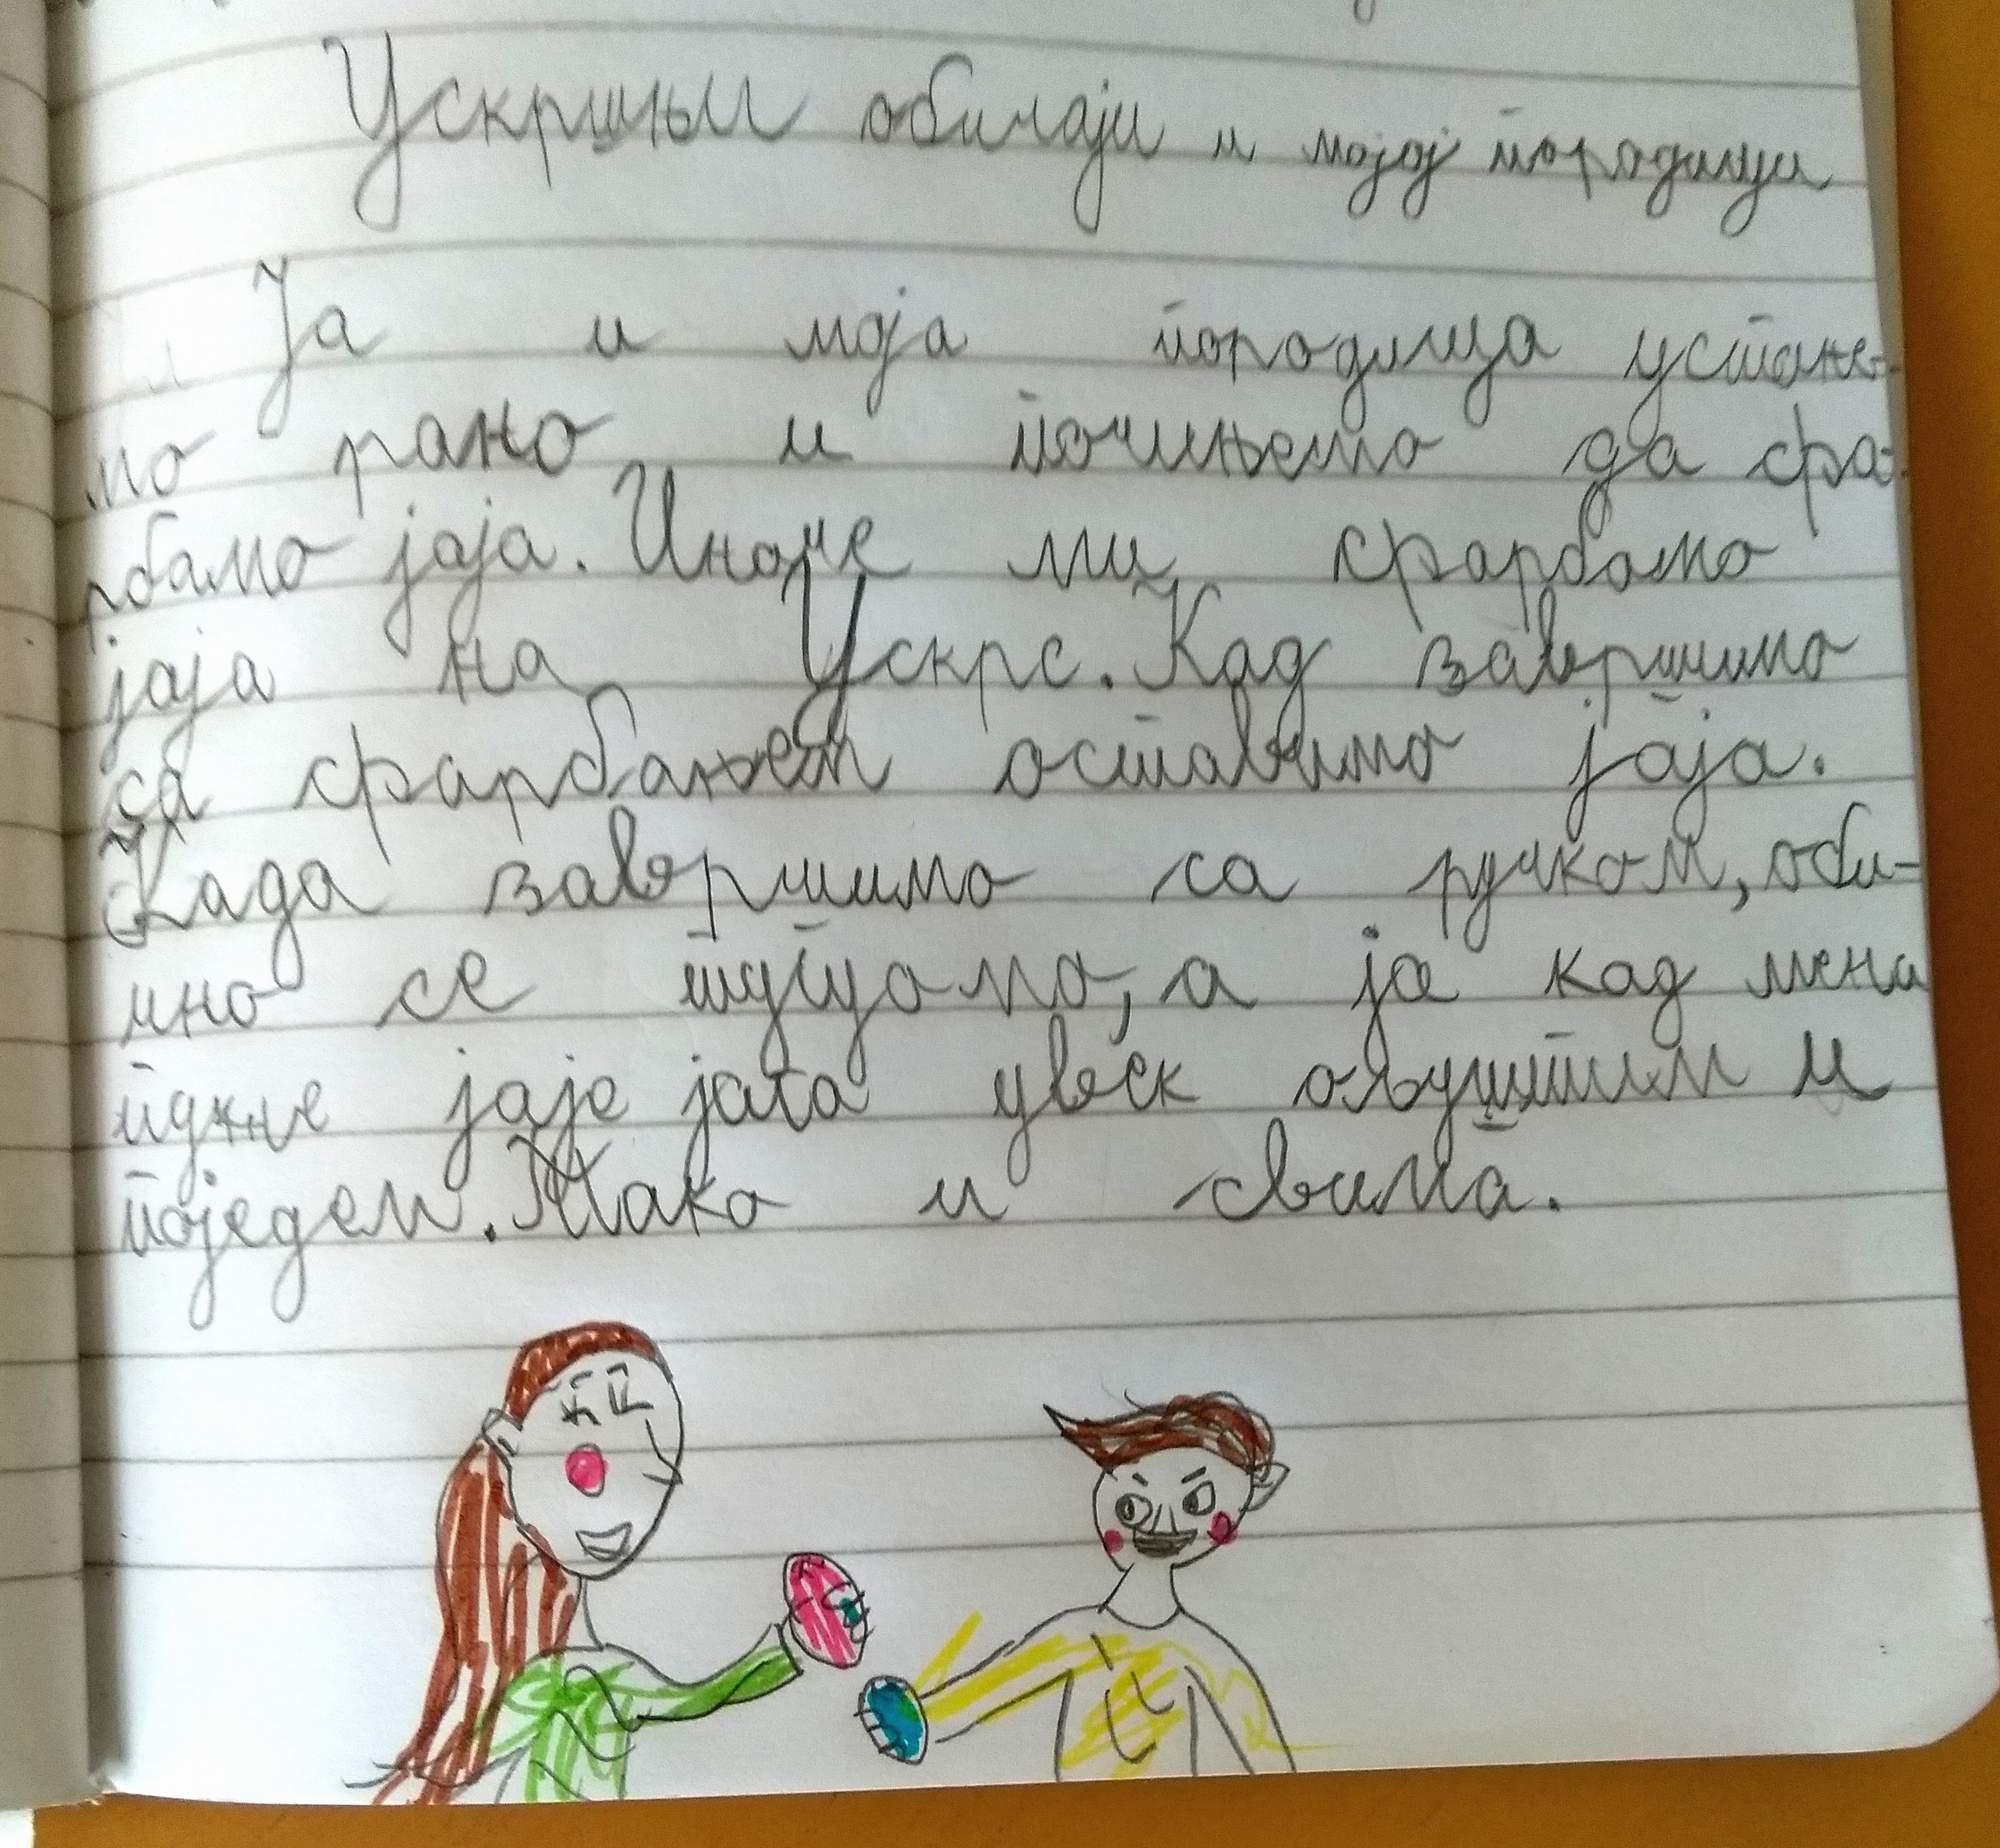 Ускршњи обичаји и мојој породици
Ја и моја породица устане-
мо рано и почињемо да фа-
рбамо јаја. Иначе ми фарбамо
јаја на Ускрс. Кад завршимо
са фарбањем оставимо јаја.
Када завршимо са ручком, оби-
чно се туцамо, а ја кад мени
пукне јаје јага увек ољуштим и
поједем. Тако и свима.